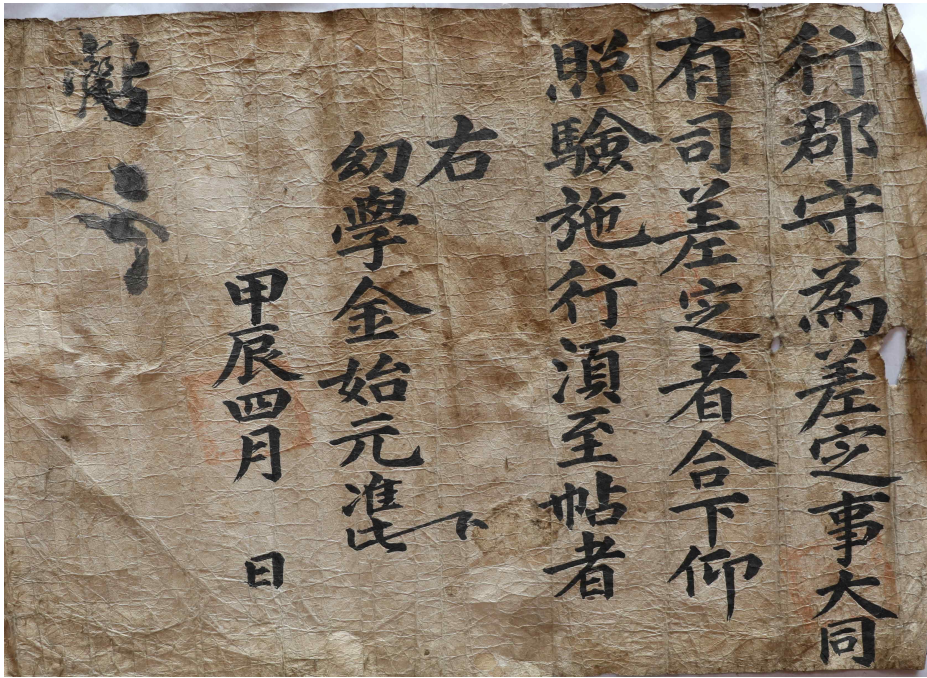 行郡守為差定事大同
有司差定者合下仰
照驗施行須至帖者
右下
幼學金始元準此
甲辰四月 日